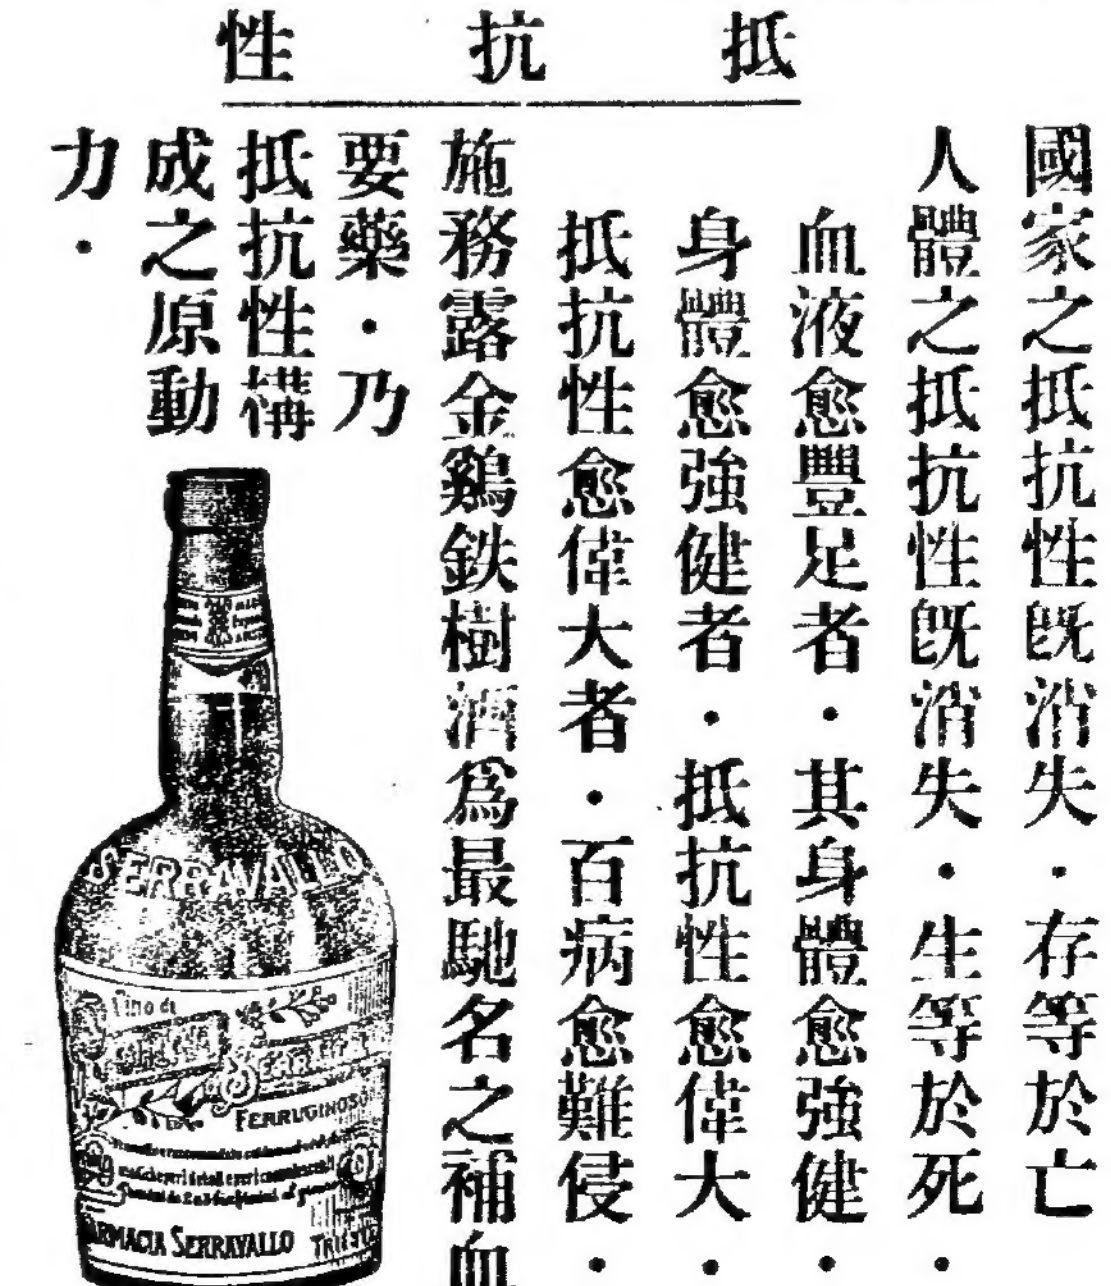 抵抗性
國家之抵抗性旣消失・存等於亡
人體之抵抗性旣消失・生等於死・
血液愈豐足者・其身體愈強健・
身體愈強健者・抵抗性愈偉大・
抵抗性愈偉大者・百病愈難侵・
施務露金鷄鉄樹酒爲最馳名之補血
要藥・乃
抵抗性構
成之原動
力・
SERRAVALLO
Vino di
SERRAVALLO
FERRUGINOSO
FARMACIA SERRAVALLO TRIESTE